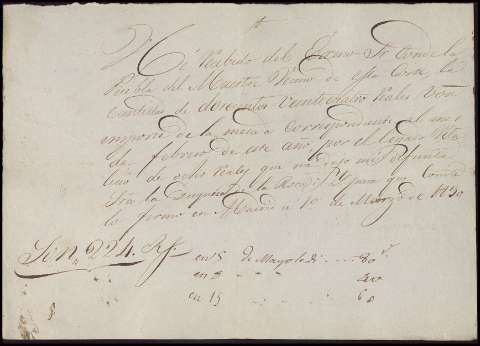 He Recibido del Exmo. Sr. Conde de la
Puebla del Maestre Vecino de esta Corte, la
Cantidad de doscientos veinte cuatro Reales Von
importe de la mesada correspondiente al mes
de febrero de este año por el legado
de ocho Reales que me dejo mi Difunta
Sra. la para que conste
lo firmo en Madrid a 1º de Marzo de 1830
Son 224. Rs
en 5 de Mayo le di .... 80 r
en 8 " " 
en 15